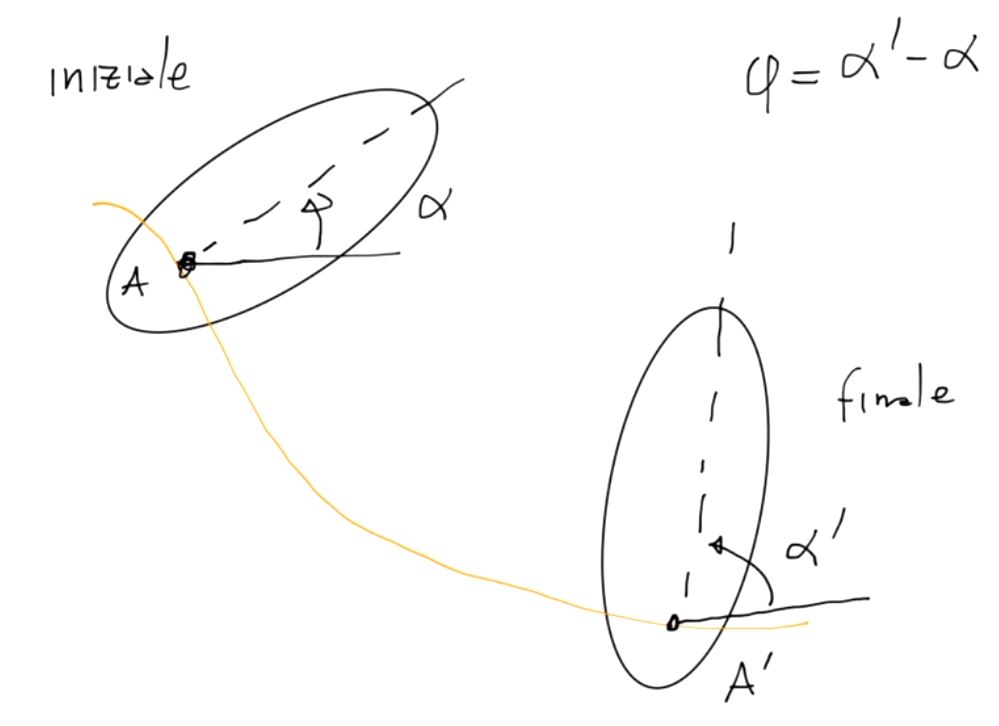 iniziale
φ = α' - α
α
A
finale
α'
A'